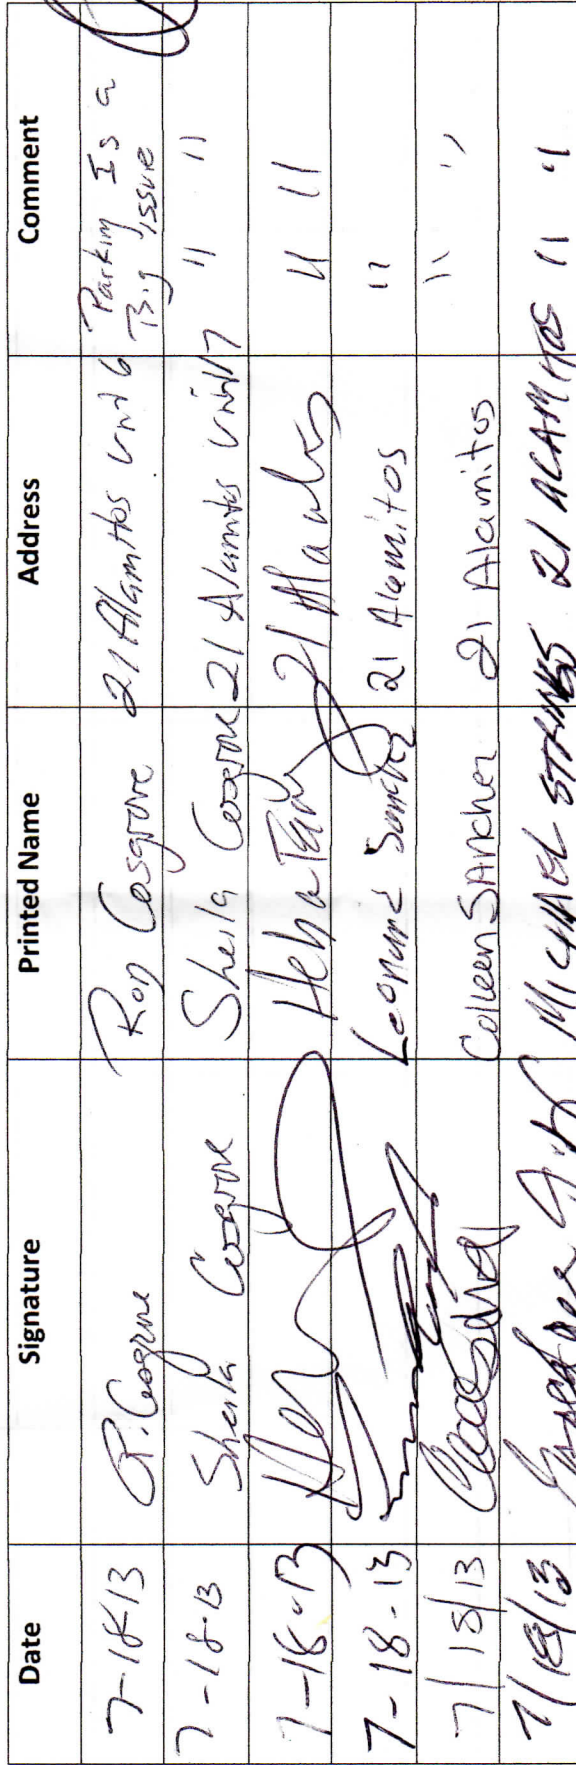 Date Signature Printed Name Address Comment
7-18-13 R. Cosgrove Ron Cosgrove 21 Alamitos Unit 6 Parking Is a
Big issue
7-18-13 Sheila Cosgrove Sheila Cosgrove 21 Alamitos Unit 7 " "
7-18-13 21 " "
7-18-13 Leonard Sanchez 21 Alamitos "
7/18/13 Colleen Sancher 21 Alamitos " "
7/18/13 MICHAEL 21 ALAMITOS " "